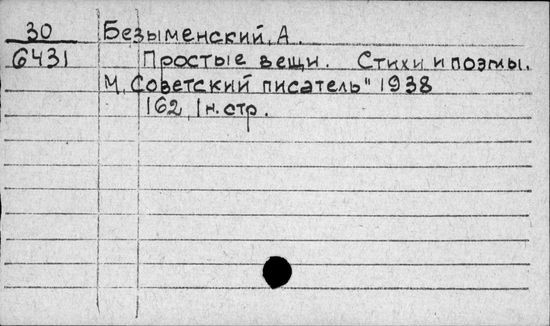 30 Безыменский, А.
6431 Простые вещи. Стихи и поэмы.
М, Советский писатель" 1938
162, 1 н. стр.